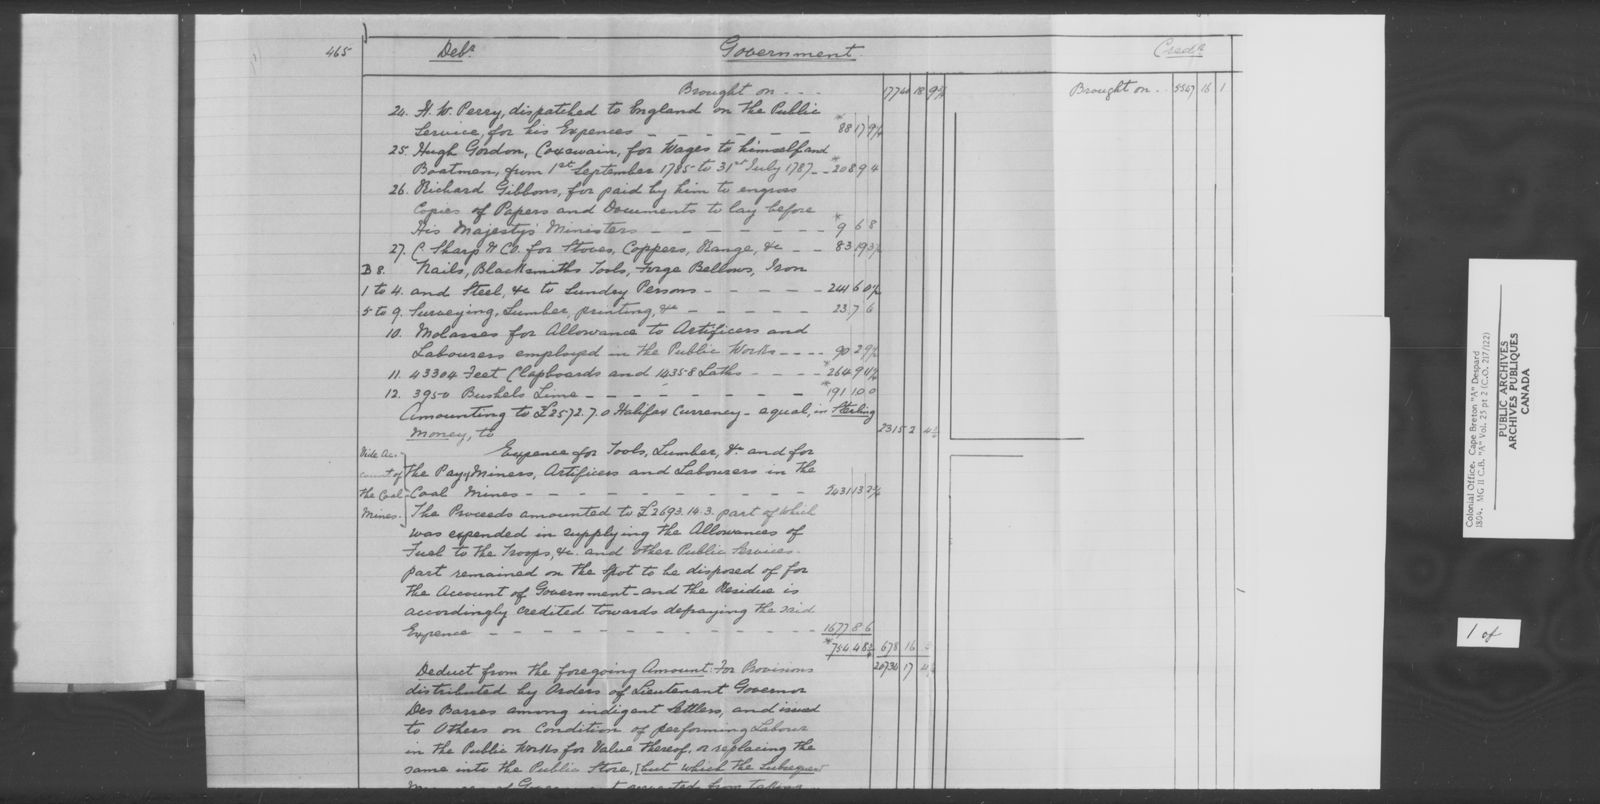 465 Deb.r Government. Cred.r
Brought on - - - 17740 18 9¾ Brought on - - 5567 16 1
24. H. W. Perry, dispatched to England on the Public
Service, for his Expences - - - - - - *88 17 9½
25. Hugh Gordon, Coxswain, for Wages to himself and
Boatmen, from 1st September 1785 to 31st July 1787 - - *208 9 4
26. Richard Gibbons, for paid by him to engross
Copies of Papers and Documents to lay before
His Majesty's Ministers - - - - - *9 6 8
27. C. Sharp & Co. for Stoves, Coppers, Range, &c - - 83 19 3½
B 8. Nails, Blacksmiths Tools, Forge Bellows, Iron
1 to 4. and Steel, &c to Sundry Persons - - - - - 241 6 0½
5 to 9. Surveying, Lumber, printing, &c - - - - - 23 7 6
10. Molasses for Allowance to Artificers and
Labourers employed in the Public Works - - - - 90 2 9½
11. 43304 Feet Clapboards and 14358 Laths - - - - *264 9 11½
12. 3950 Bushels Lime - - - - - - - *191 10 0
Amounting to £2572.7.0 Halifax Currency - equal, in Sterling
Money, to 2315 2 4½
Vide Ac- Expence for Tools, Lumber, &c. and for
count of the Pay, Miners, Artificers and Labourers in the
the Coal Coal Mines - - - - - - - - - - 2431 13 2¾
Mines. The Proceeds amounted to £2693.14.3. part of which
was expended in supplying the Allowances of
Fuel to the Troops, &c. and other Public Services -
part remained on the Spot to be disposed of for
the Account of Government - and the Residue is
accordingly credited towards defraying the said
Expence - - - - - - - - - - - 1677 8 6
*754 4 8¾ 678 16
20734 17 4½
Deduct from the foregoing Amount: For Provisions
distributed by Orders of Lieutenant Governor
Des Barres among indigent Settlers, and issued
to Others on Condition of performing Labour
in the Public Works for Value thereof, or replacing the
same into the Public Store, [but which the Subsequent
of Government from taking
Colonial Office. Cape Breton "A" Despard
1804. MG 11 C.B. "A" Vol. 25 pt 2 (C.O. 217/122)
PUBLIC ARCHIVES
ARCHIVES PUBLIQUES
CANADA
1 of